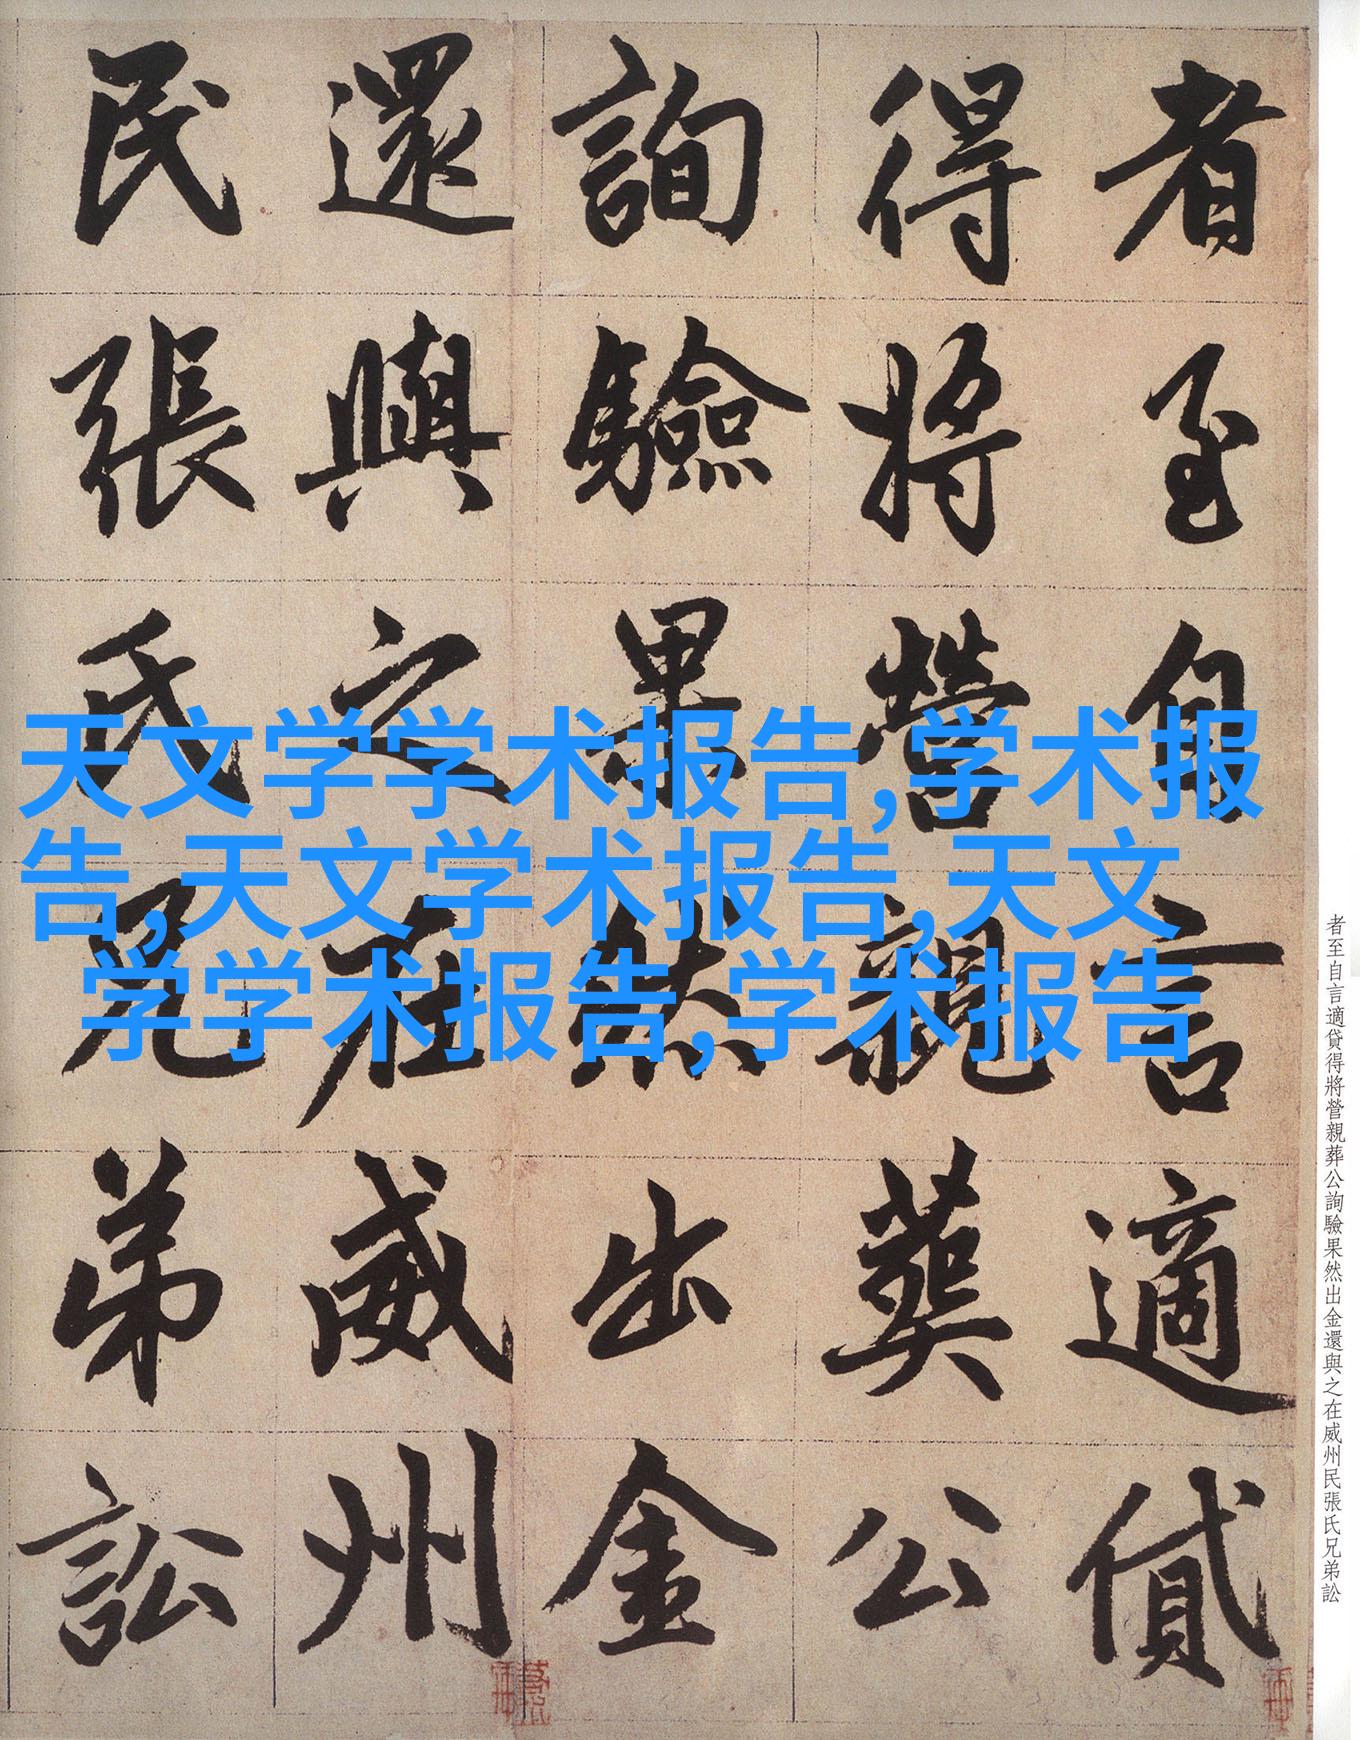 者至自言適貸
得將營親葬公
詢驗果然出金
還與之在威州
民張氏兄弟訟
天文学学术报告,学术报
告,天文学术报告,天文
学学术报告,学术报告
者至自言適貸得將營親葬公詢驗果然出金還與之在威州民張氏兄弟訟